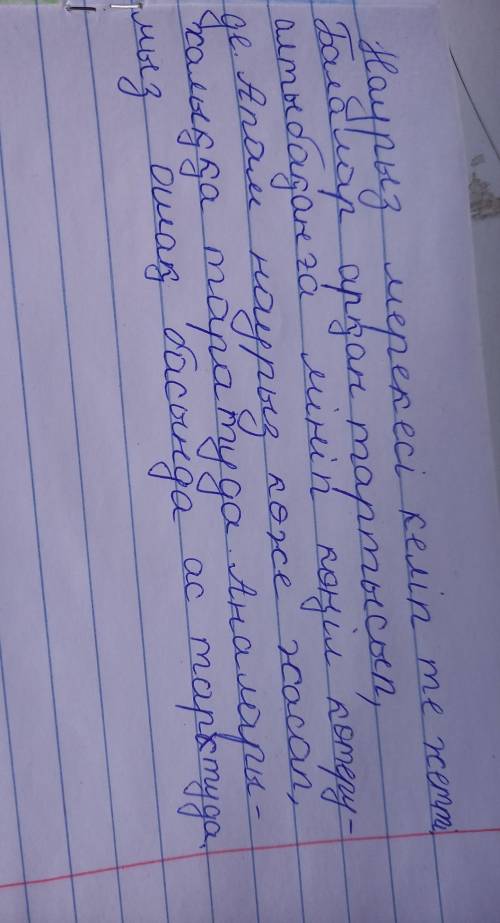 Наурыз мерекесі келіп те жетті.
Балалар арқан тартысып,
алтыбақанға мініп көңіл көтеру-
де. Апам наурыз көже жасап,
халыққа таратуда. Аналары-
мыз ошақ басында ас тартуда.